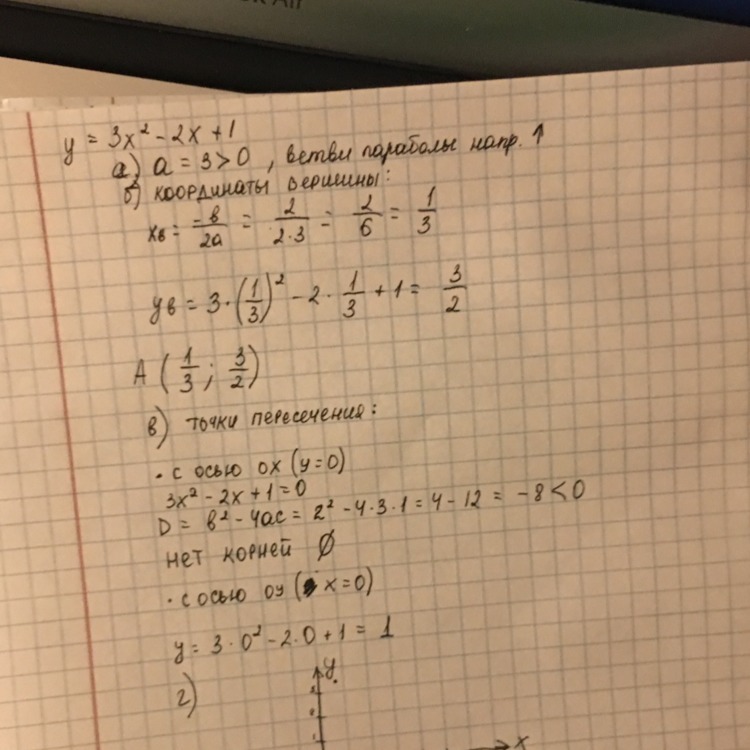 y = 3x² - 2x + 1
а) a = 3 > 0 , ветви параболы напр. ↑
б) координаты вершины:
xв = -в/2a = 2/2·3 = 2/6 = 1/3
yв = 3·(1/3)² - 2·1/3 + 1 = 3/2
A (1/3 ; 3/2)
в) точки пересечения:
· с осью ox (y=0)
3x² - 2x + 1 = 0
D = в² - 4ac = 2² - 4·3·1 = 4 - 12 = -8 < 0
нет корней ∅
· с осью oy (x=0)
y = 3·0² - 2·0 + 1 = 1
г)
y
x